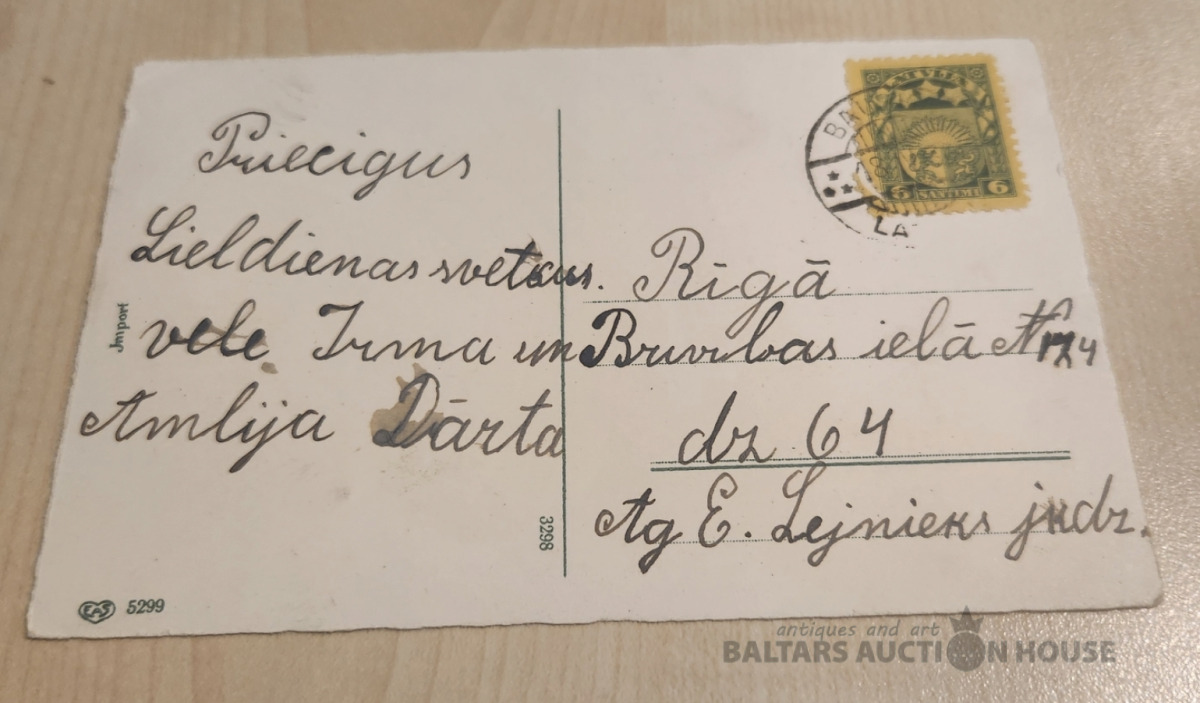 Priecigus
Lieldienas svetkus.
vele Irma un
Amlija Dārta
Import
3298
EAS 5299
LATVIJA
6 SANTIMI 6
LA
Rīgā
Brivibas ielā Nr
dz 64
Ag E. Lejnieks jkdz.
antiques and art
BALTARS AUCTION HOUSE